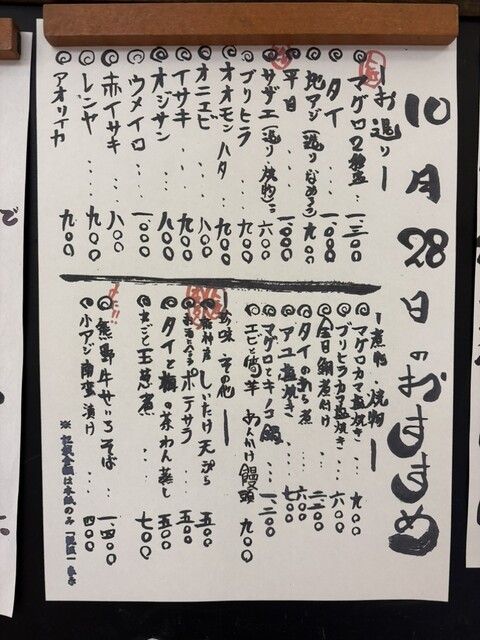 10月28日のおすすめ
ーお造りー
マグロ2種盛 : 一三〇〇
タイ ‥ 一〇〇〇
地アジ(造り・なめろう) 九〇〇
平目 ‥ 一〇〇〇
サザエ(造り・焼物) 六〇〇
ブリヒラ ‥ 九〇〇
オオモンハタ ‥ 九〇〇
オニエビ ‥ 八〇〇
イサキ … 九〇〇
オジサン … 八〇〇
ウメイロ … 一〇〇〇
赤イサキ … 八〇〇
レンヤ … 九〇〇
アオリイカ 九〇〇
ー煮物・焼物ー
マグロカマ塩焼き ‥ 九〇〇
ブリヒラカマ塩焼き ‥ 六〇〇
金目鯛煮付け ‥ 二二〇〇
タイのあら煮 … 六〇〇
アユ塩焼き … 七〇〇
マグロとキノコ鍋 … 一、二〇〇
エビと筍羊あんかけ饅頭 九〇〇
珍味 その他ー
しいたけ天ぷら 五〇〇
ポテサラ … 五〇〇
タイと梅の茶わん蒸し 五〇〇
まるごと玉葱煮 … 七〇〇
熊野牛せいろそば … 一、四〇〇
小アジ南蛮漬け … 四〇〇